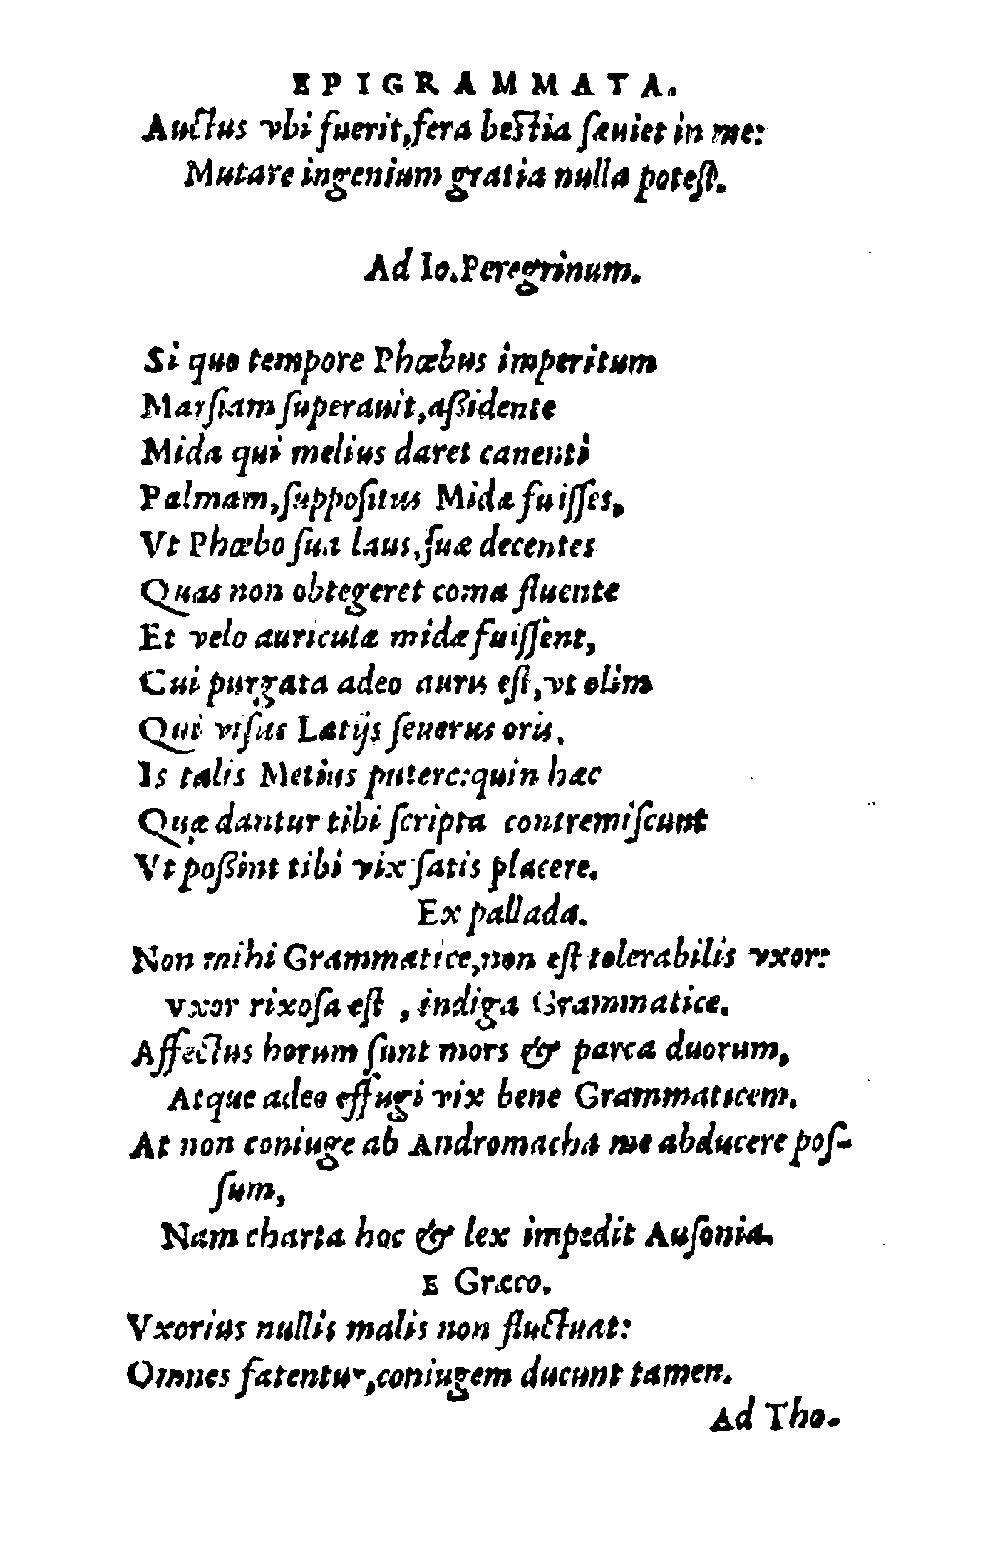 EPIGRAMMATA.
Auctus vbi fuerit, fera bestia sæuiet in me:
Mutare ingenium gratia nulla potest.
Ad Io. Peregrinum.
Si quo tempore Phœbus imperitum
Marsiam superauit, aßidente
Mida qui melius daret canenti
Palmam, suppositus Midæ fuisses,
Vt Phœbo sua laus, suæ decentes
Quas non obtegeret coma fluente
Et velo auriculæ midæ fuissent,
Cui purgata adeo auris est, vt olim
Qui visus Latijs seuerus oris.
Is talis Metius putere: quin hæc
Quæ dantur tibi scripta contremiscunt
Vt poßint tibi vix satis placere.
Ex pallada.
Non mihi Grammatice, non est tolerabilis vxor:
vxor rixosa est, indiga Grammatice.
Affectus horum sunt mors & parca duorum,
Atque adeo effugi vix bene Grammaticem.
At non coniuge ab Andromacha me abducere pos-
sum,
Nam charta hoc & lex impedit Ausonia.
E Græco.
Vxorius nullis malis non fluctuat:
Omnes fatentur, coniugem ducunt tamen.
Ad Tho.